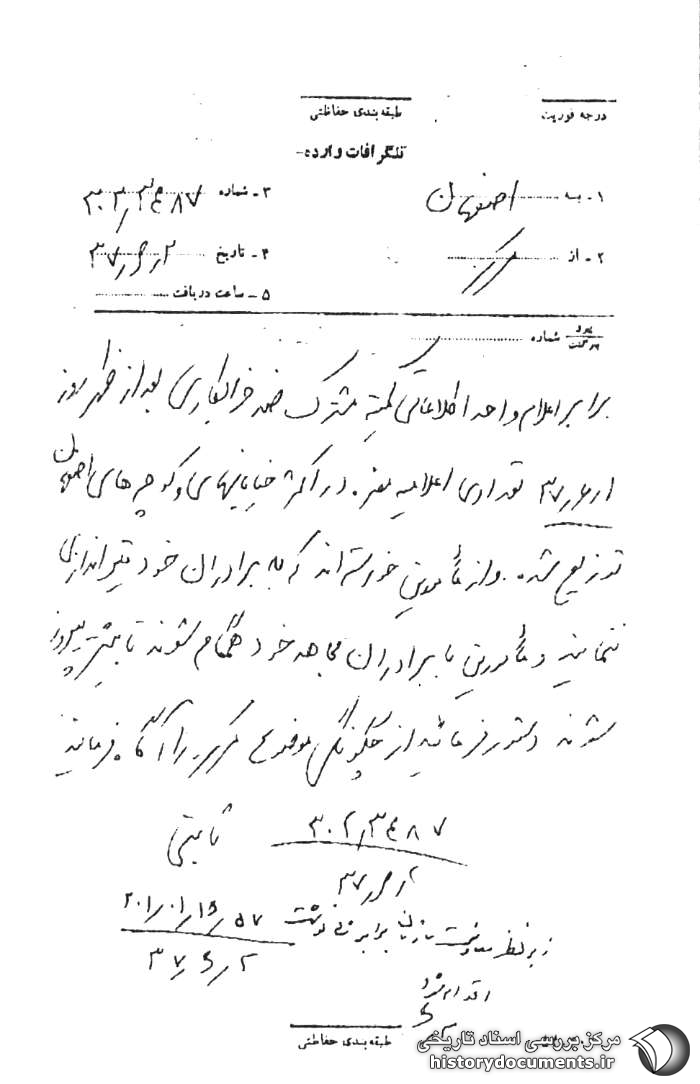 درجه فوریت
طبقه‌بندی حفاظتی
تلگرافات وارده
۱ـ به اصفهان
۳ـ شماره ۳۰۲/۳۴۸۷
۲ـ از مرکز
۴ـ تاریخ ۳۷/۶/۲
۵ـ ساعت دریافت
پیرو
بازگشت
شماره
برابر اعلام واحد اطلاعاتی کمیته مشترک ضد خرابکاری بعد از ظهر روز
۳۷/۶/۱ تعدادی اعلامیه مضره در اکثر خیابانهای و کوچه‌های اصفهان
توزیع شده و از مأمورین خواسته‌اند که به برادران خود تیراندازی
ننمایند و مأمورین با برادران مجاهد خود همگام شوند تا پیروز
شوند دستور فرمائید از چگونگی موضوع مرکز را آگاه فرمائید
۳۰۲/۳۴۸۷
ثابتی
۳۷/۶/۲
زیر نظر معاونت سازمان برابر پی نوشت
اقدام شود
۳۷/۶/۲
طبقه‌بندی حفاظتی
مرکز بررسی اسناد تاریخی
historydocuments.ir